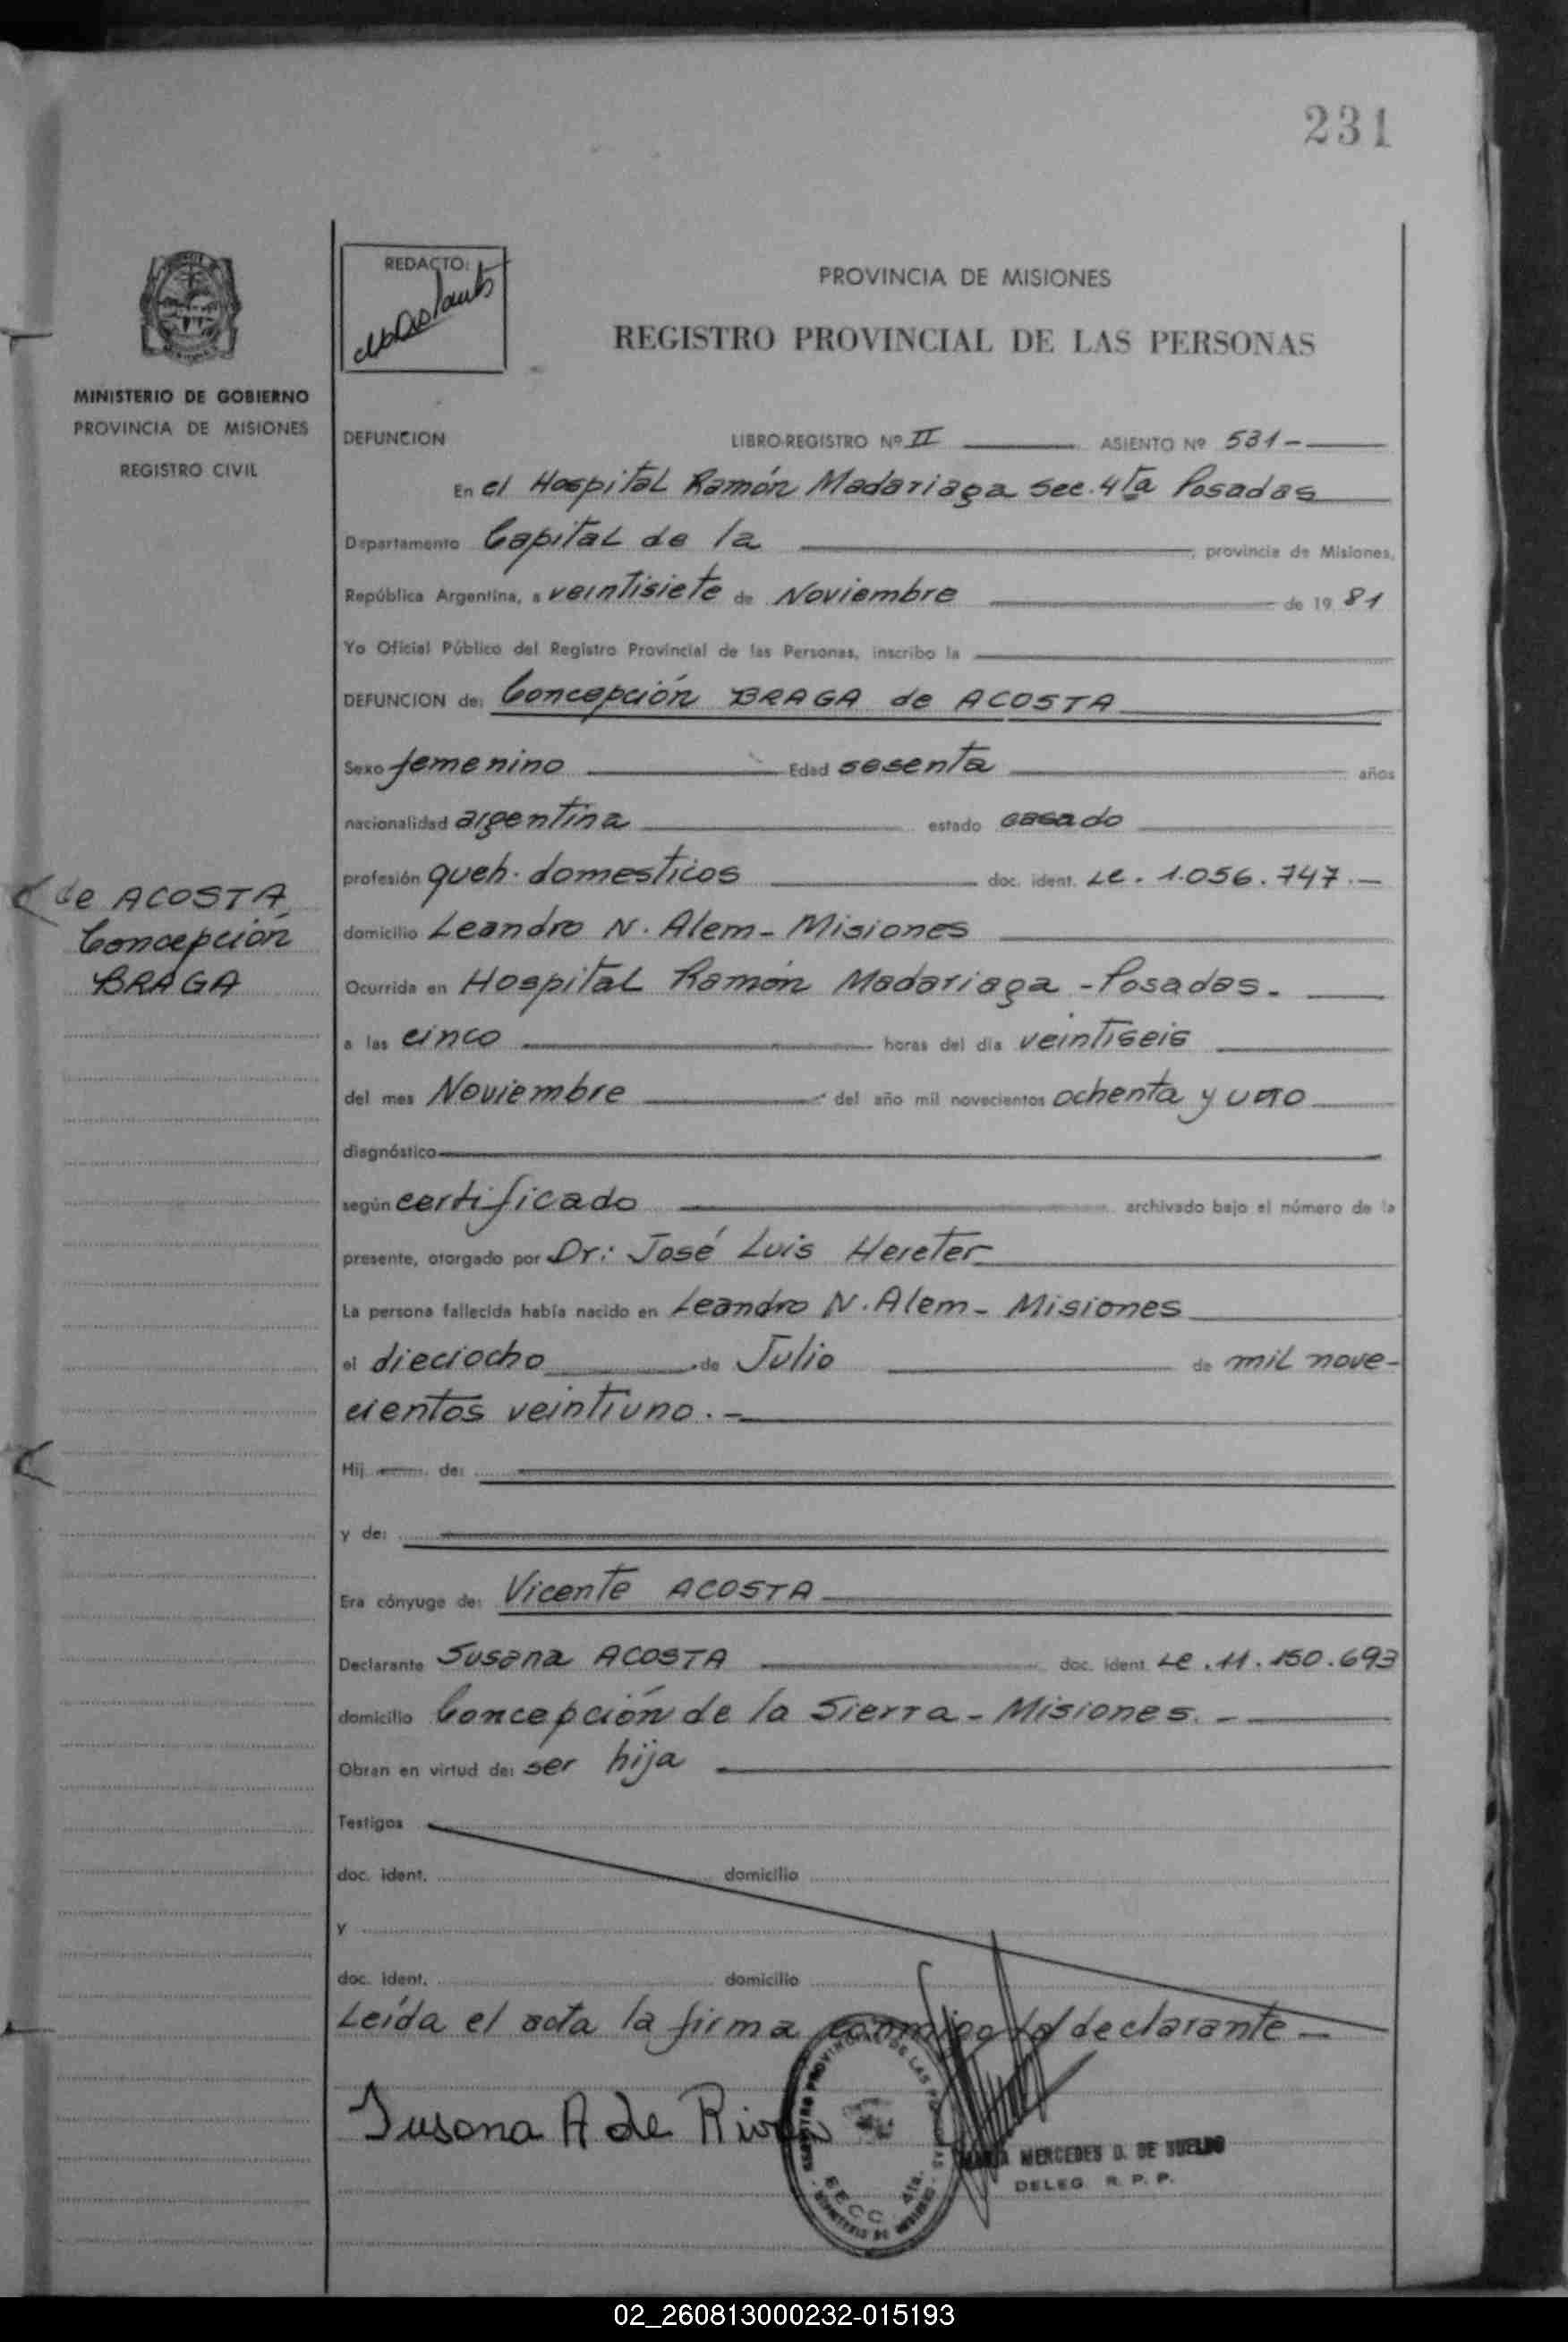 231
REDACTO:
PROVINCIA DE MISIONES
REGISTRO PROVINCIAL DE LAS PERSONAS
MINISTERIO DE GOBIERNO
PROVINCIA DE MISIONES
REGISTRO CIVIL
DEFUNCION LIBRO-REGISTRO Nº II ASIENTO Nº 531-
En el Hospital Ramón Madariaga sec. 4ta Posadas
Departamento Capital de la provincia de Misiones,
República Argentina, a veintisiete de Noviembre de 19 81
Yo Oficial Público del Registro Provincial de las Personas, inscribo la
DEFUNCION de: Concepción BRAGA de ACOSTA
Sexo femenino Edad sesenta años
nacionalidad argentina estado casado
profesión queh. domesticos doc. ident. Le. 1.056.747.-
de ACOSTA
Concepción
BRAGA
domicilio Leandro N. Alem - Misiones
Ocurrida en Hospital Ramón Madariaga - Posadas.
a las cinco horas del día veintiseis
del mes Noviembre del año mil novecientos ochenta y uno
diagnóstico
según certificado archivado bajo el número de la
presente, otorgado por Dr: José Luis Hereter
La persona fallecida había nacido en Leandro N. Alem - Misiones
el dieciocho de Julio de mil nove-
cientos veintiuno.-
Hij de:
y de:
Era cónyuge de: Vicente ACOSTA
Declarante Susana ACOSTA doc. ident. Le. 11.150.693
domicilio Concepción de la Sierra - Misiones. -
Obran en virtud de: ser hija
Testigos
doc. ident. domicilio
y
doc. ident. domicilio
Leída el acta la firma conmigo la declarante -
Susana A de
REGISTRO PROVINCIAL DE LAS PERSONAS
SECC. 4ta.
MARIA MERCEDES D. DE SUELDO
DELEG R. P. P.
02_260813000232-015193